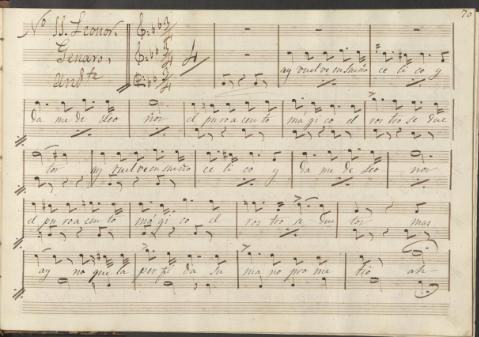 70
Nº 11. Leonor.
Genaro,
And.te
ay vuelve en sueño ce li co y
da me de leo nor el pu ro a cen to ma gi co el ros tro se duc
tor ay vuel ve en sueño ce li co y da me de leo nor
el pu ro a cen to ma gi co el ros tro se duc tor mas
ay no que la per fi da su ma no pro me tió